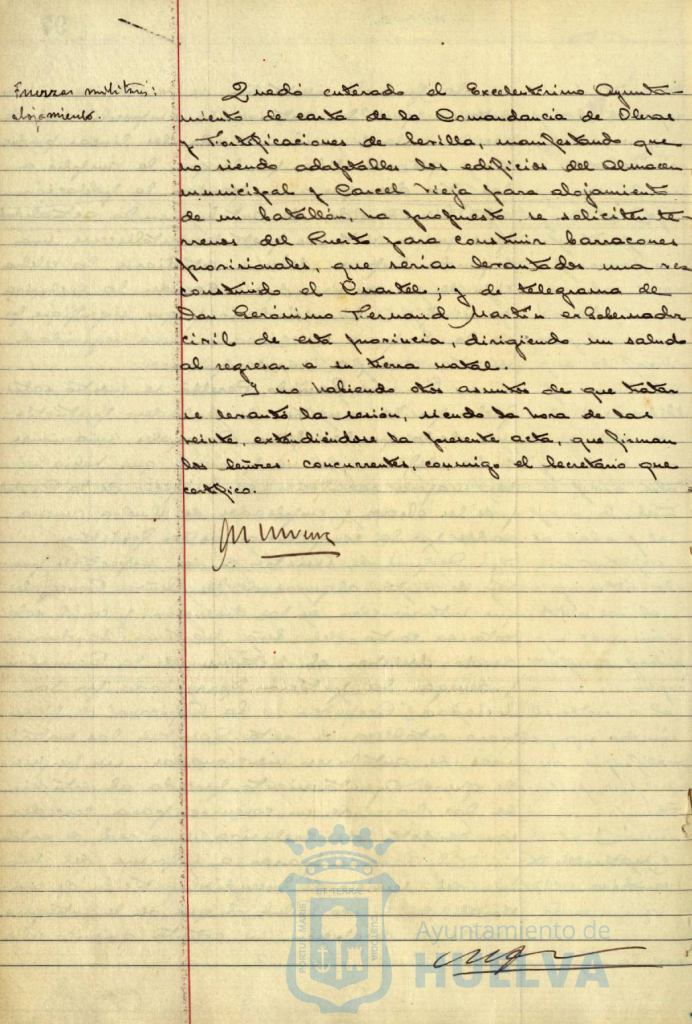 Fuerzas militares:
alojamiento.
Quedó enterado el Excelentísimo Ayunta-
miento de carta de la Comandancia de Obras
y Fortificaciones de Sevilla, manifestando que
no siendo adaptables los edificios del Almacen
municipal y Carcel Vieja para alojamiento
de un batallón, ha propuesto se soliciten te-
rrenos del Puerto para construir barracones
provisionales, que serían levantados una vez
construido el Cuartel; y de telegrama de
Don Gerónimo Fernand Martín ex Gobernador
civil de esta provincia, dirigiendo un saludo
al regresar a su tierra natal.
Y no habiendo otros asuntos de que tratar
se levantó la sesión, siendo la hora de las
veinte, extendiéndose la presente acta, que firman
los señores concurrentes, conmigo el Secretario que
certifico.
PORTUS MARIS
ET TERRÆ
CUSTODIA
Ayuntamiento de
HUELVA